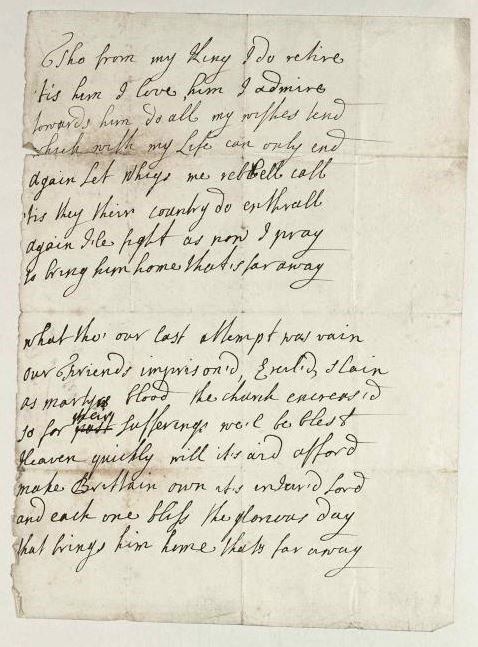 Tho from my King I do retire
'tis him I love him I admire
towards him do all my wishes tend
which with my Life can only end
again Let Whigs me rebbell call
'tis they their country do enthrall
again I'le fight as now I pray
to bring him home that's far away
what tho' our last attempt was vain
our Friends imprison'd, Exil'd, slain
as martyrs blood the church encreas'd
so for their past sufferings we'l be blest
Heaven quickly will it's aid afford
make Brittain own it's injur'd Lord
and each one bless the glorious day
that brings him home thats far away